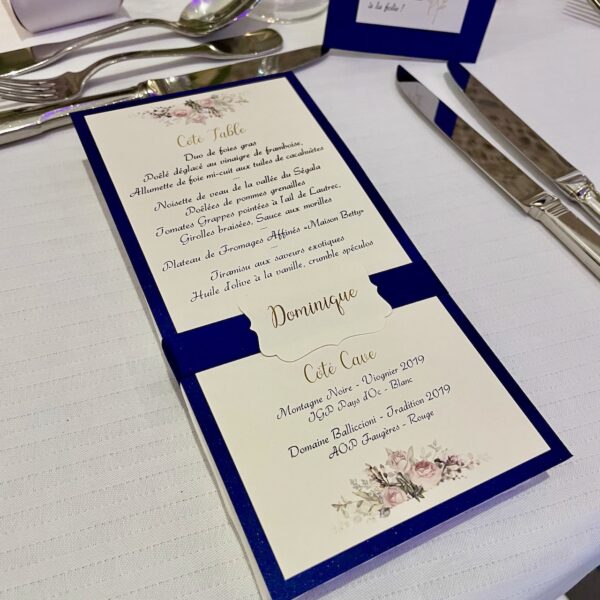 à la folie !
Côté Table
Duo de foies gras
Poêlé déglacé au vinaigre de framboise,
Allumette de foie mi-cuit aux tuiles de cacahuètes
~
Noisette de veau de la vallée du Ségala
Poêlées de pommes grenailles
Tomates Grappes pointées à l'ail de Lautrec,
Girolles braisées, Sauce aux morilles
~
Plateau de Fromages Affinés «Maison Betty»
~
Tiramisu aux saveurs exotiques
Huile d'olive à la vanille, crumble spéculos
Dominique
Côté Cave
Montagne Noire - Viognier 2019
IGP Pays d'Oc - Blanc
Domaine Balliccioni - Tradition 2019
AOP Faugères - Rouge